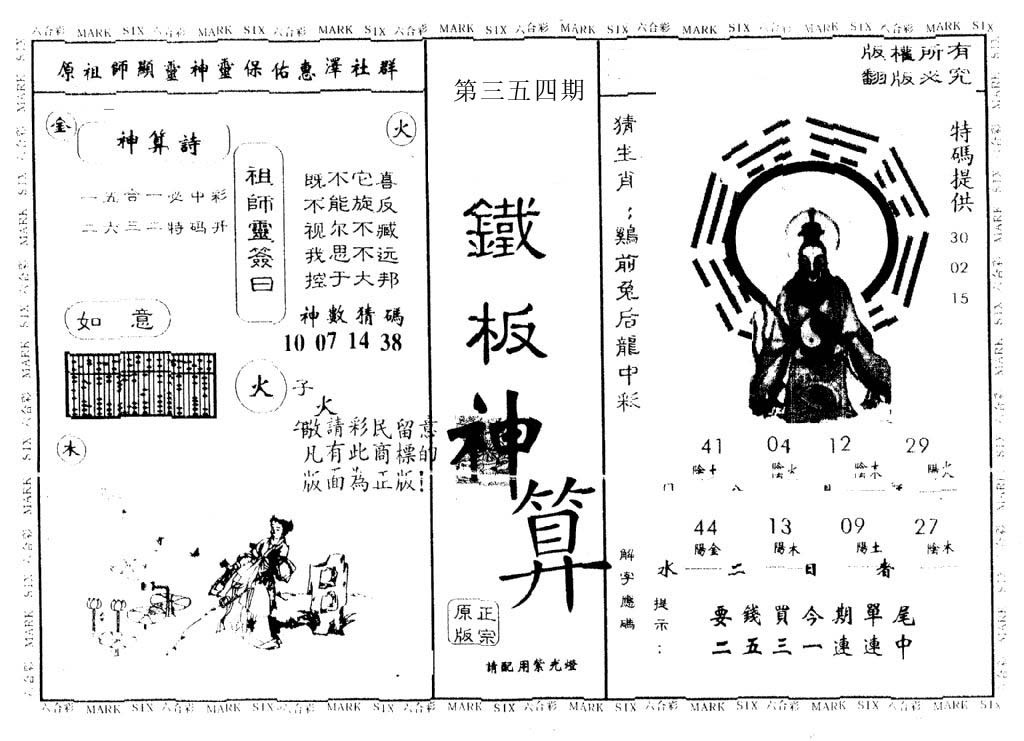 六合彩 MARK SIX 六合彩 MARK SIX 六合彩 MARK SIX 六合彩 MARK SIX 六合彩 MARK SIX 六合彩 MARK SIX 六合彩 MARK SIX 六合彩 MARK SIX
原祖師顯靈神靈保佑惠澤社群
金
神算詩
一五合一必中彩
二六三二特码开
火
祖師靈簽曰
既不它喜
不能旋反
视尔不臧
我思不远
控于大邦
神數猜碼
10 07 14 38
如意
火
子
火
木
敬請彩民留意
凡有此商標的
版面為正版!
第三五四期
鐵板神算
正宗
原版
請配用紫光燈
版權所有
翻版必究
猜生肖:鷄前兔后龍中彩
特碼提供
30
02
15
41 04 12 29
陰土 陰火 陰木 陽火
44 13 09 27
陽金 陽木 陽土 陰木
水 二 日 香
解字應碼
提示:
要錢買今期單尾
二五三一連連中
六合彩 MARK SIX 六合彩 MARK SIX 六合彩 MARK SIX 六合彩 MARK SIX 六合彩 MARK SIX 六合彩 MARK SIX 六合彩 MARK SIX 六合彩 MARK SIX